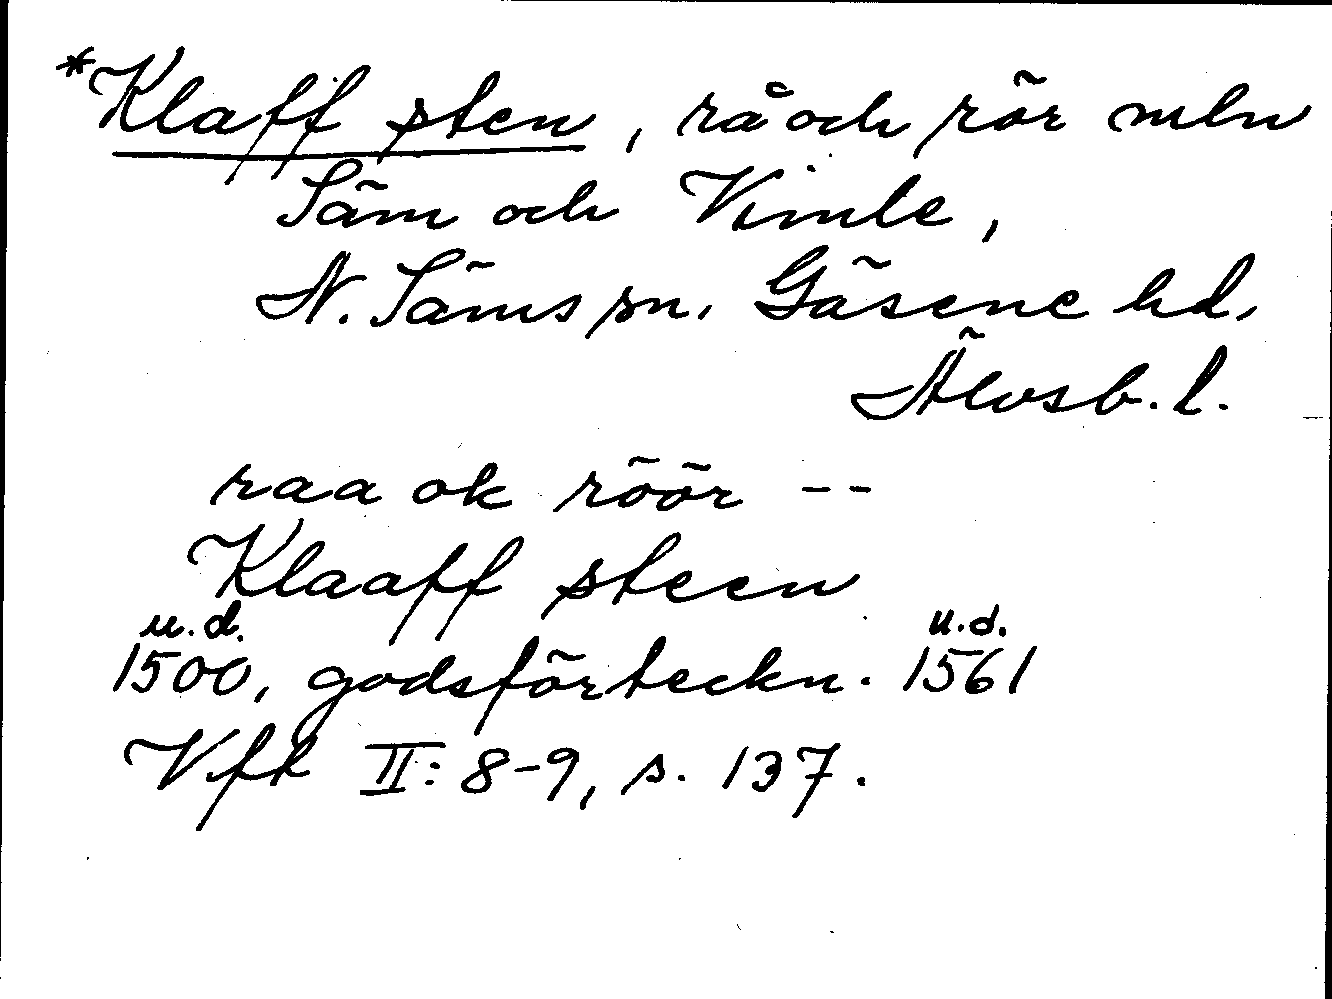 *Klaff sten, rå och rör mln
Säm och Vimle,
N. Säms sn. Gäsene hd,
Älvsb. l.
raa ok röör --
Klaaff steen
u.d. u.d.
1500, godsförteckn. 1561
Vfk II: 8-9, s. 137.